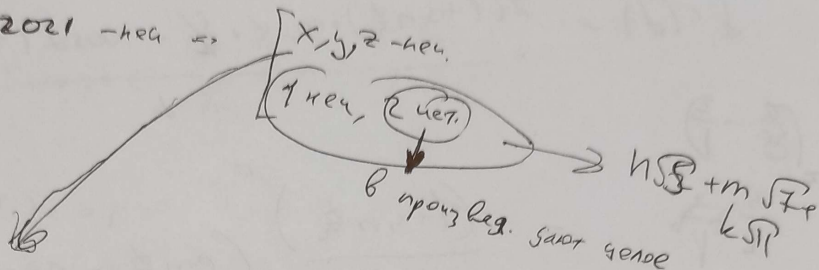 2021 - неч => x, y, z - неч.
1 неч, 2 чет.
в произвед. дают целое
n√5 + m√7 +
k√11